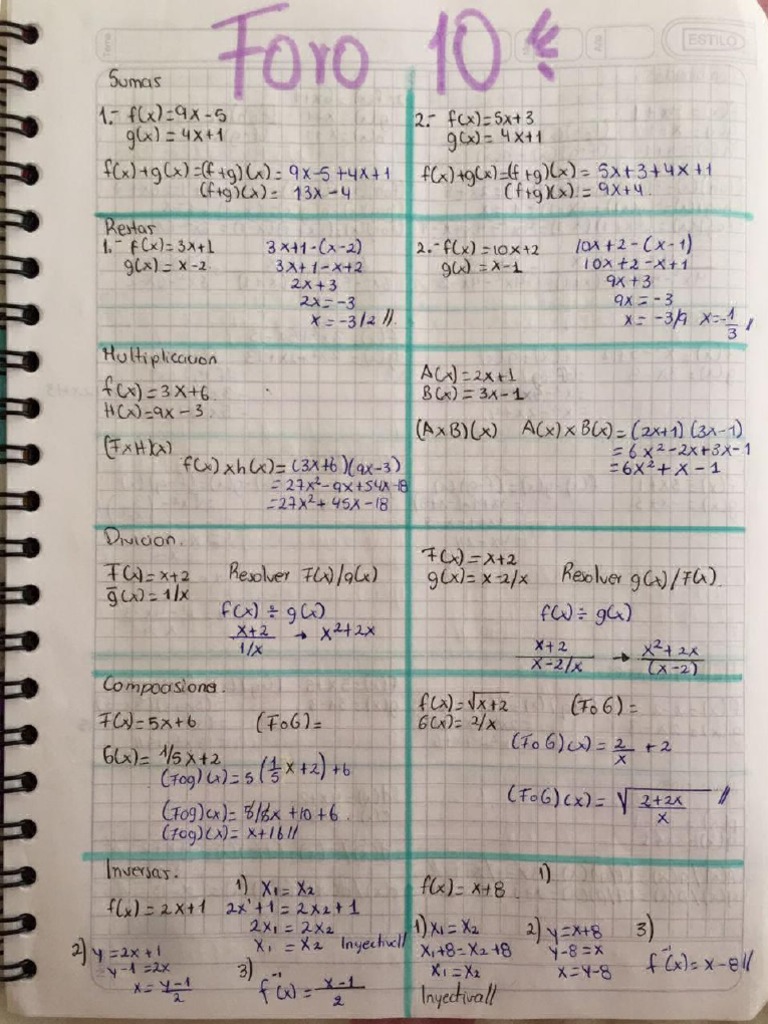 Foro 10
ESTILO
Sumas
1.- f(x)=9x-5
g(x)=4x+1
f(x)+g(x)=(f+g)(x)=9x-5+4x+1
(f+g)(x)= 13x-4
2.- f(x)=5x+3
g(x)=4x+1
f(x)+g(x)=(f+g)(x)=5x+3+4x+1
(f+g)(x)=9x+4
Restas
1.- f(x)=3x+1
g(x)=x-2
3x+1-(x-2)
3x+1-x+2
2x+3
2x=-3
x=-3/2 //
2.- f(x)=10x+2
g(x)=x-1
10x+2-(x-1)
10x+2-x+1
9x+3
9x=-3
x=-3/9 x=-1/3 //
Multiplicacion
f(x)=3x+6
H(x)=9x-3
(FxH)(x)
f(x)xh(x)=(3x+6)(9x-3)
=27x²-9x+54x-18
=27x²+45x-18
A(x)=2x+1
B(x)=3x-1
(AxB)(x) A(x)xB(x)=(2x+1)(3x-1)
=6x²-2x+3x-1
=6x²+x-1
Divicion.
F(x)=x+2 Resolver F(x)/g(x)
g(x)=1/x
f(x)÷g(x)
x+2
1/x → x²+2x
F(x)=x+2
g(x)=x-2/x Resolver g(x)/F(x).
f(x)÷g(x)
x+2 x²+2x
x-2/x → (x-2)
Compocisiona.
F(x)=5x+6 (FoG)=
G(x)=1/5x+2
(Fog)(x)=5(1/5x+2)+6
(Fog)(x)=5/5x+10+6
(Fog)(x)=x+16//
f(x)=√x+2 (FoG)=
G(x)=2/x
(FoG)(x)=2/x+2
(FoG)(x)=√2+2x/x //
Inversas.
f(x)=2x+1
1) x₁=x₂
2x¹+1=2x₂+1
2x₁=2x₂
x₁=x₂ Inyectiva//
2) y=2x+1
y-1=2x
x=y-1/2
3)
f⁻¹(x)=x-1/2
f(x)=x+8 1)
1) x₁=x₂
x₁+8=x₂+8
x₁=x₂
Inyectiva//
2) y=x+8
y-8=x
x=y-8
3)
f⁻¹(x)=x-8//